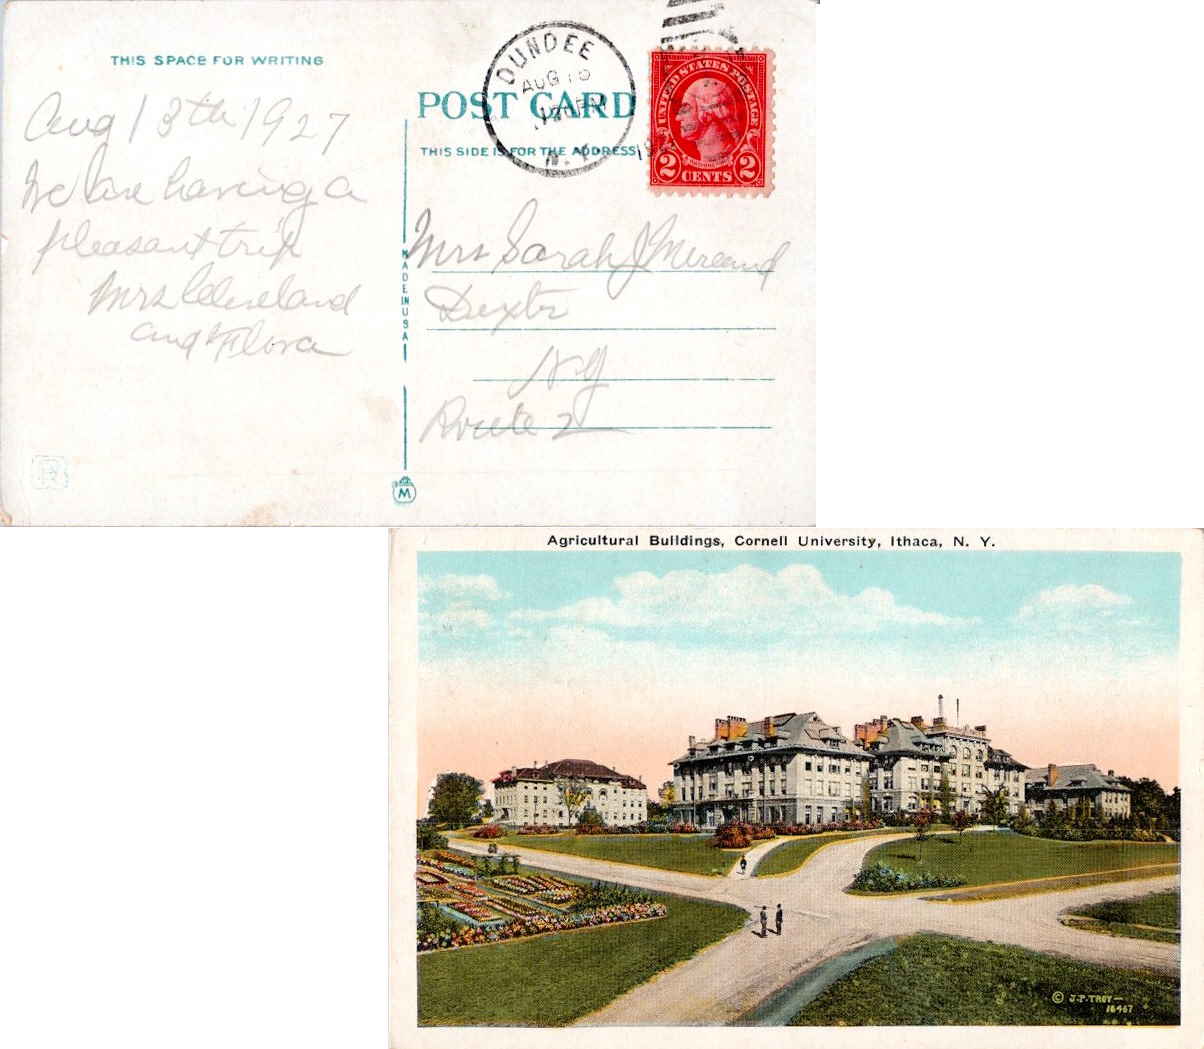 THIS SPACE FOR WRITING
Aug 13th 1927
We are having a
pleasant trip
Mrs Cleveland
and Flora
POST CARD
THIS SIDE IS FOR THE ADDRESS
DUNDEE
AUG
N.Y.
UNITED STATES POSTAGE
2 CENTS 2
MADE IN USA
Mrs Sarah J
Dexter
N Y
Route 2
M
Agricultural Buildings, Cornell University, Ithaca, N. Y.
© J.P. TROY—
16467